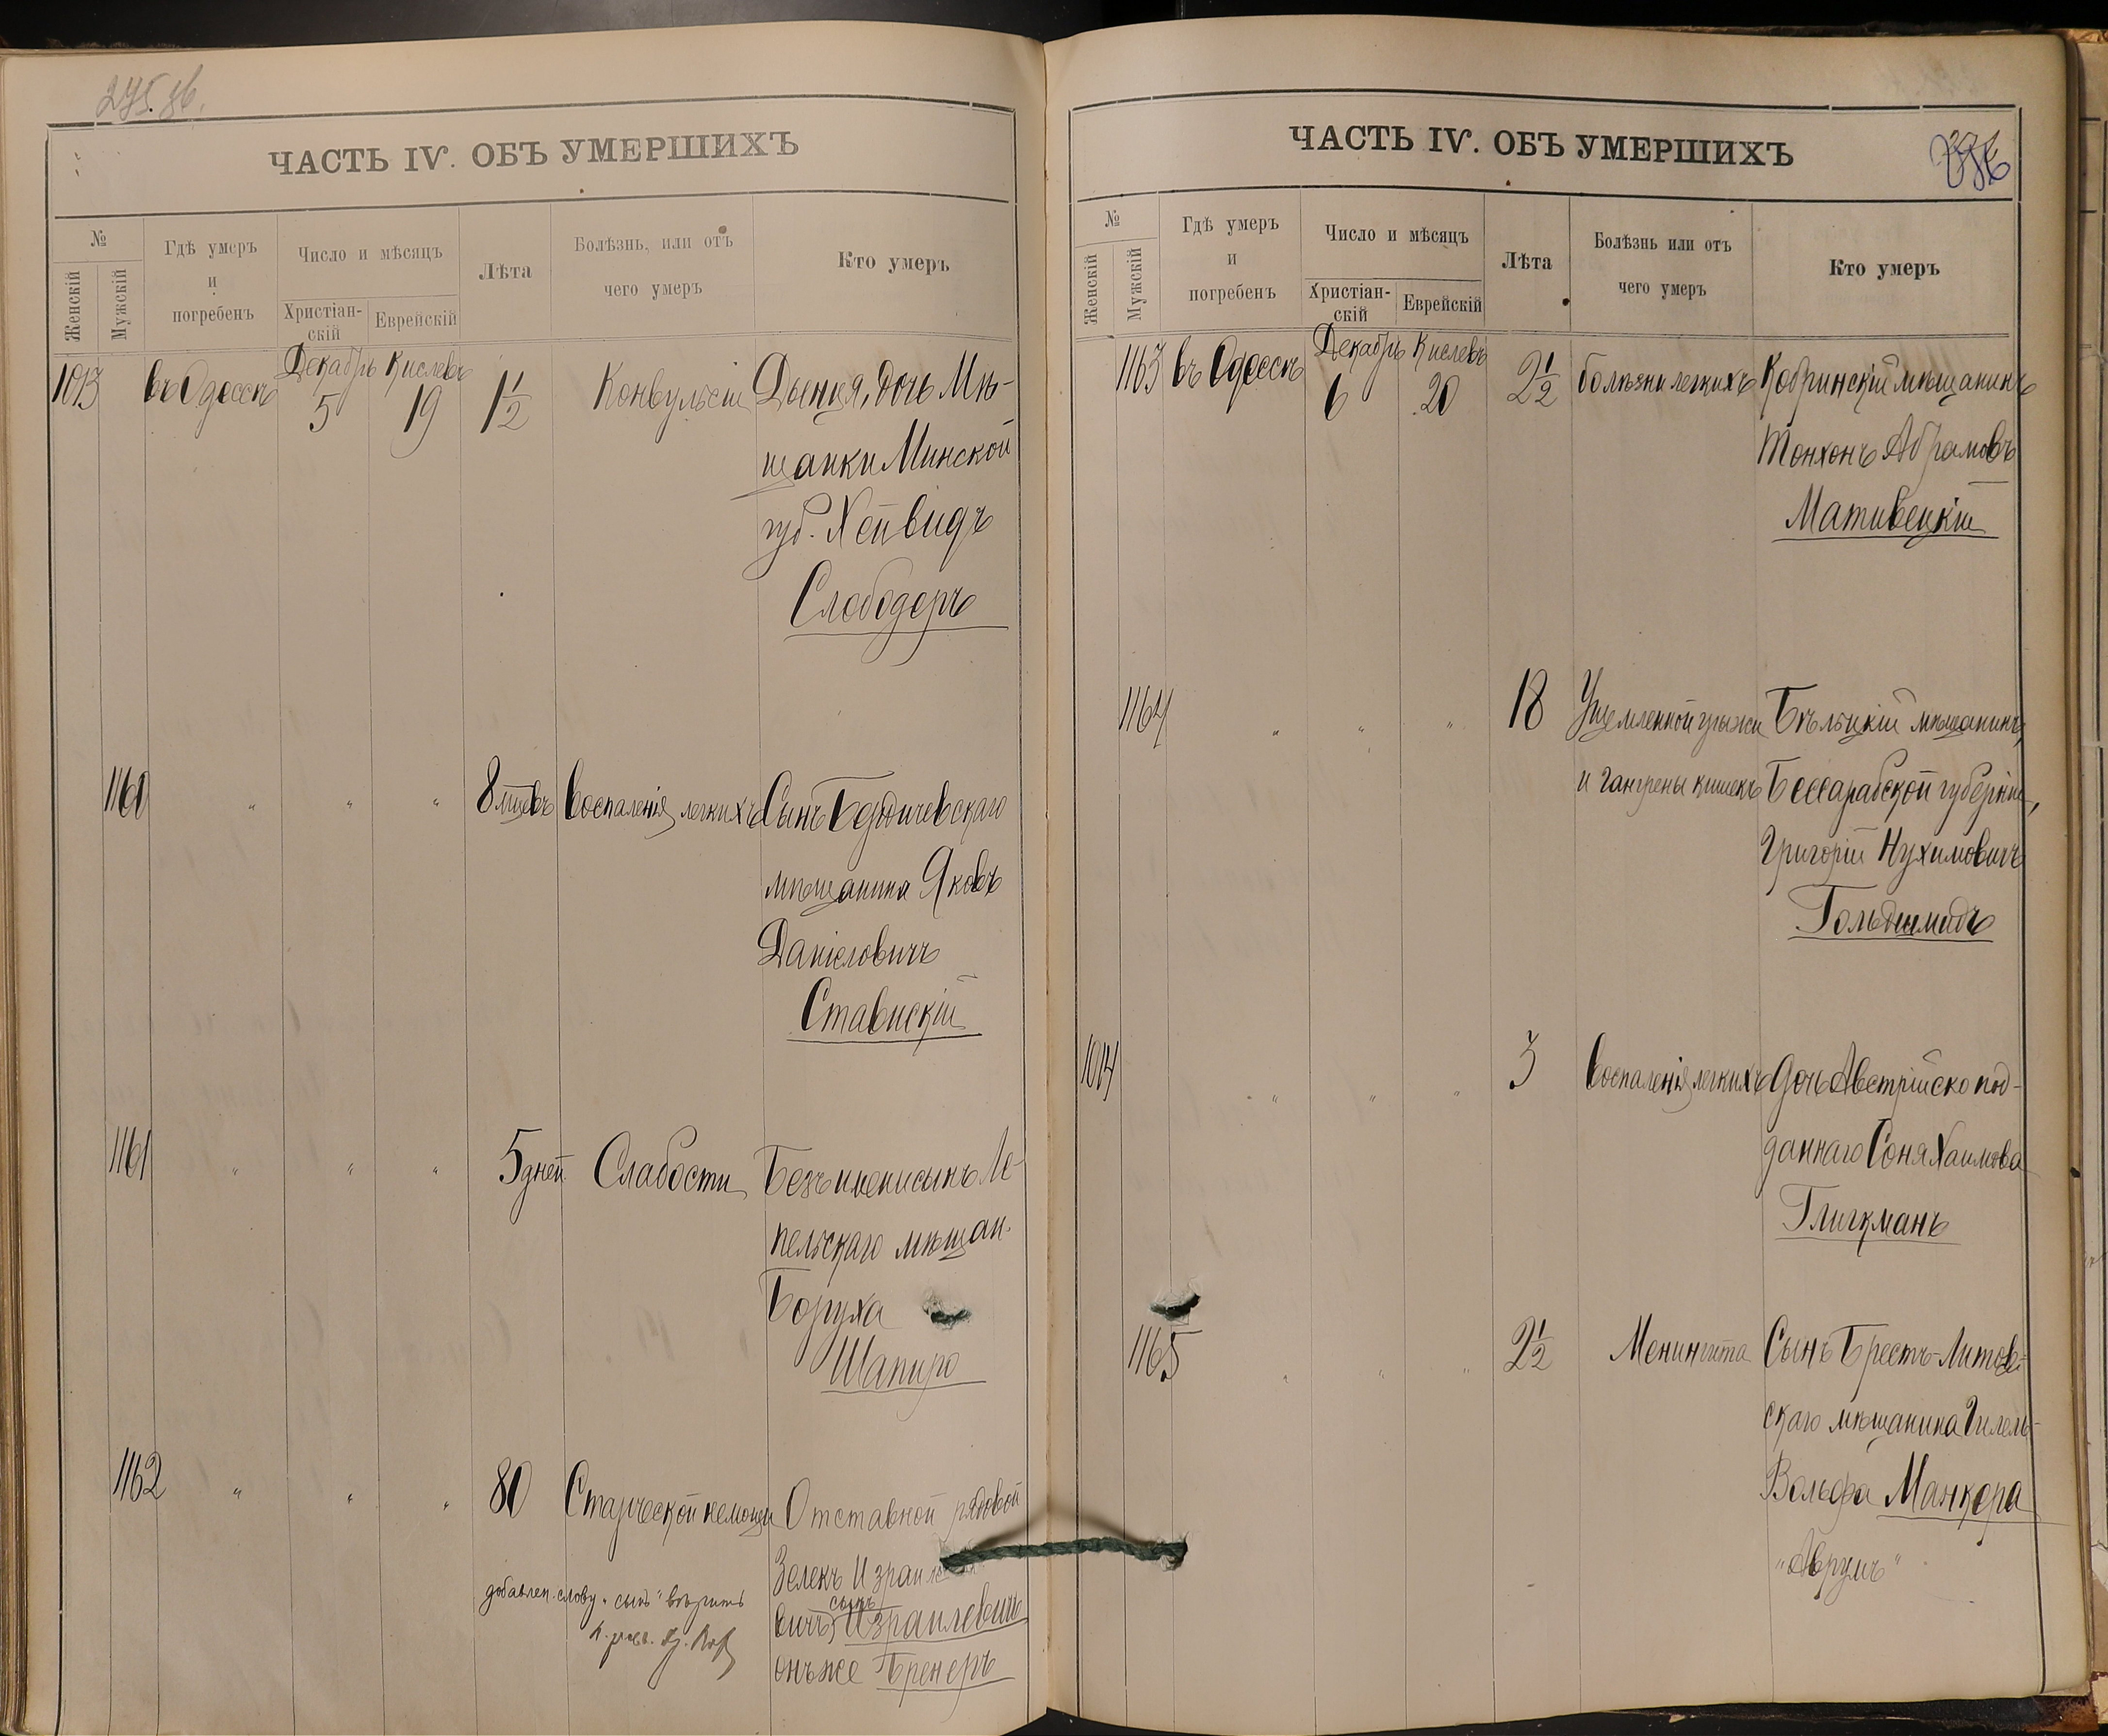 275 об.
ЧАСТЬ IV. ОБЪ УМЕРШИХЪ
№
Женскій
Мужскій
Гдѣ умеръ
и
погребенъ
Число и мѣсяцъ
Христіан-
скій
Еврейскій
Лѣта
Болѣзнь, или отъ
чего умеръ
Кто умеръ
1013 въ Одессѣ Декабрь 5 Кислевъ 19 1½ Конвульсіи
дочь Мѣ-
щанки Минской
губ.
Слободеръ
1160 " " " 8 мѣсцевъ Воспаленія легкихъ Сынъ Бердичевскаго
мѣщанина Яковъ
Даніеловичъ
Ставискій
1161 " " " 5 дней Слабости Безъ имени сынъ Ле-
пельскаго мѣщан.
Боруха
Шапиро
1162 " " " 80 Старческой немощи Отставной рядовой
Зелекъ Израиле
вичъ, сынъ Израилевичъ
онъ же Бренеръ
добавлен. слову "сынъ" вѣрить
ЧАСТЬ IV. ОБЪ УМЕРШИХЪ
276
№
Женскій
Мужскій
Гдѣ умеръ
и
погребенъ
Число и мѣсяцъ
Христіан-
скій
Еврейскій
Лѣта
Болѣзнь или отъ
чего умеръ
Кто умеръ
1163 въ Одессѣ Декабрь 6 Кислевъ 20 2½ болѣзни легкихъ Кобринскій мѣщанинъ
Тонхонъ Абрамовъ
Мативецкій
1164 " " " 18 Ущемленной грыжи Бѣльцкій мѣщанинъ,
и гангрены кишекъ Бессарабской губерніи,
Григорій Нухимовичъ
Гольдшмидъ
1014 " " " 3 Воспаленія легкихъ дочь Австрійско под-
даннаго Соня Хаимова
Гликманъ
1165 " " " 2½ Менингита Сынъ Брестъ-Литов-
скаго мѣщанина Гилель-
Вольфа Манкера
"Аврумъ"